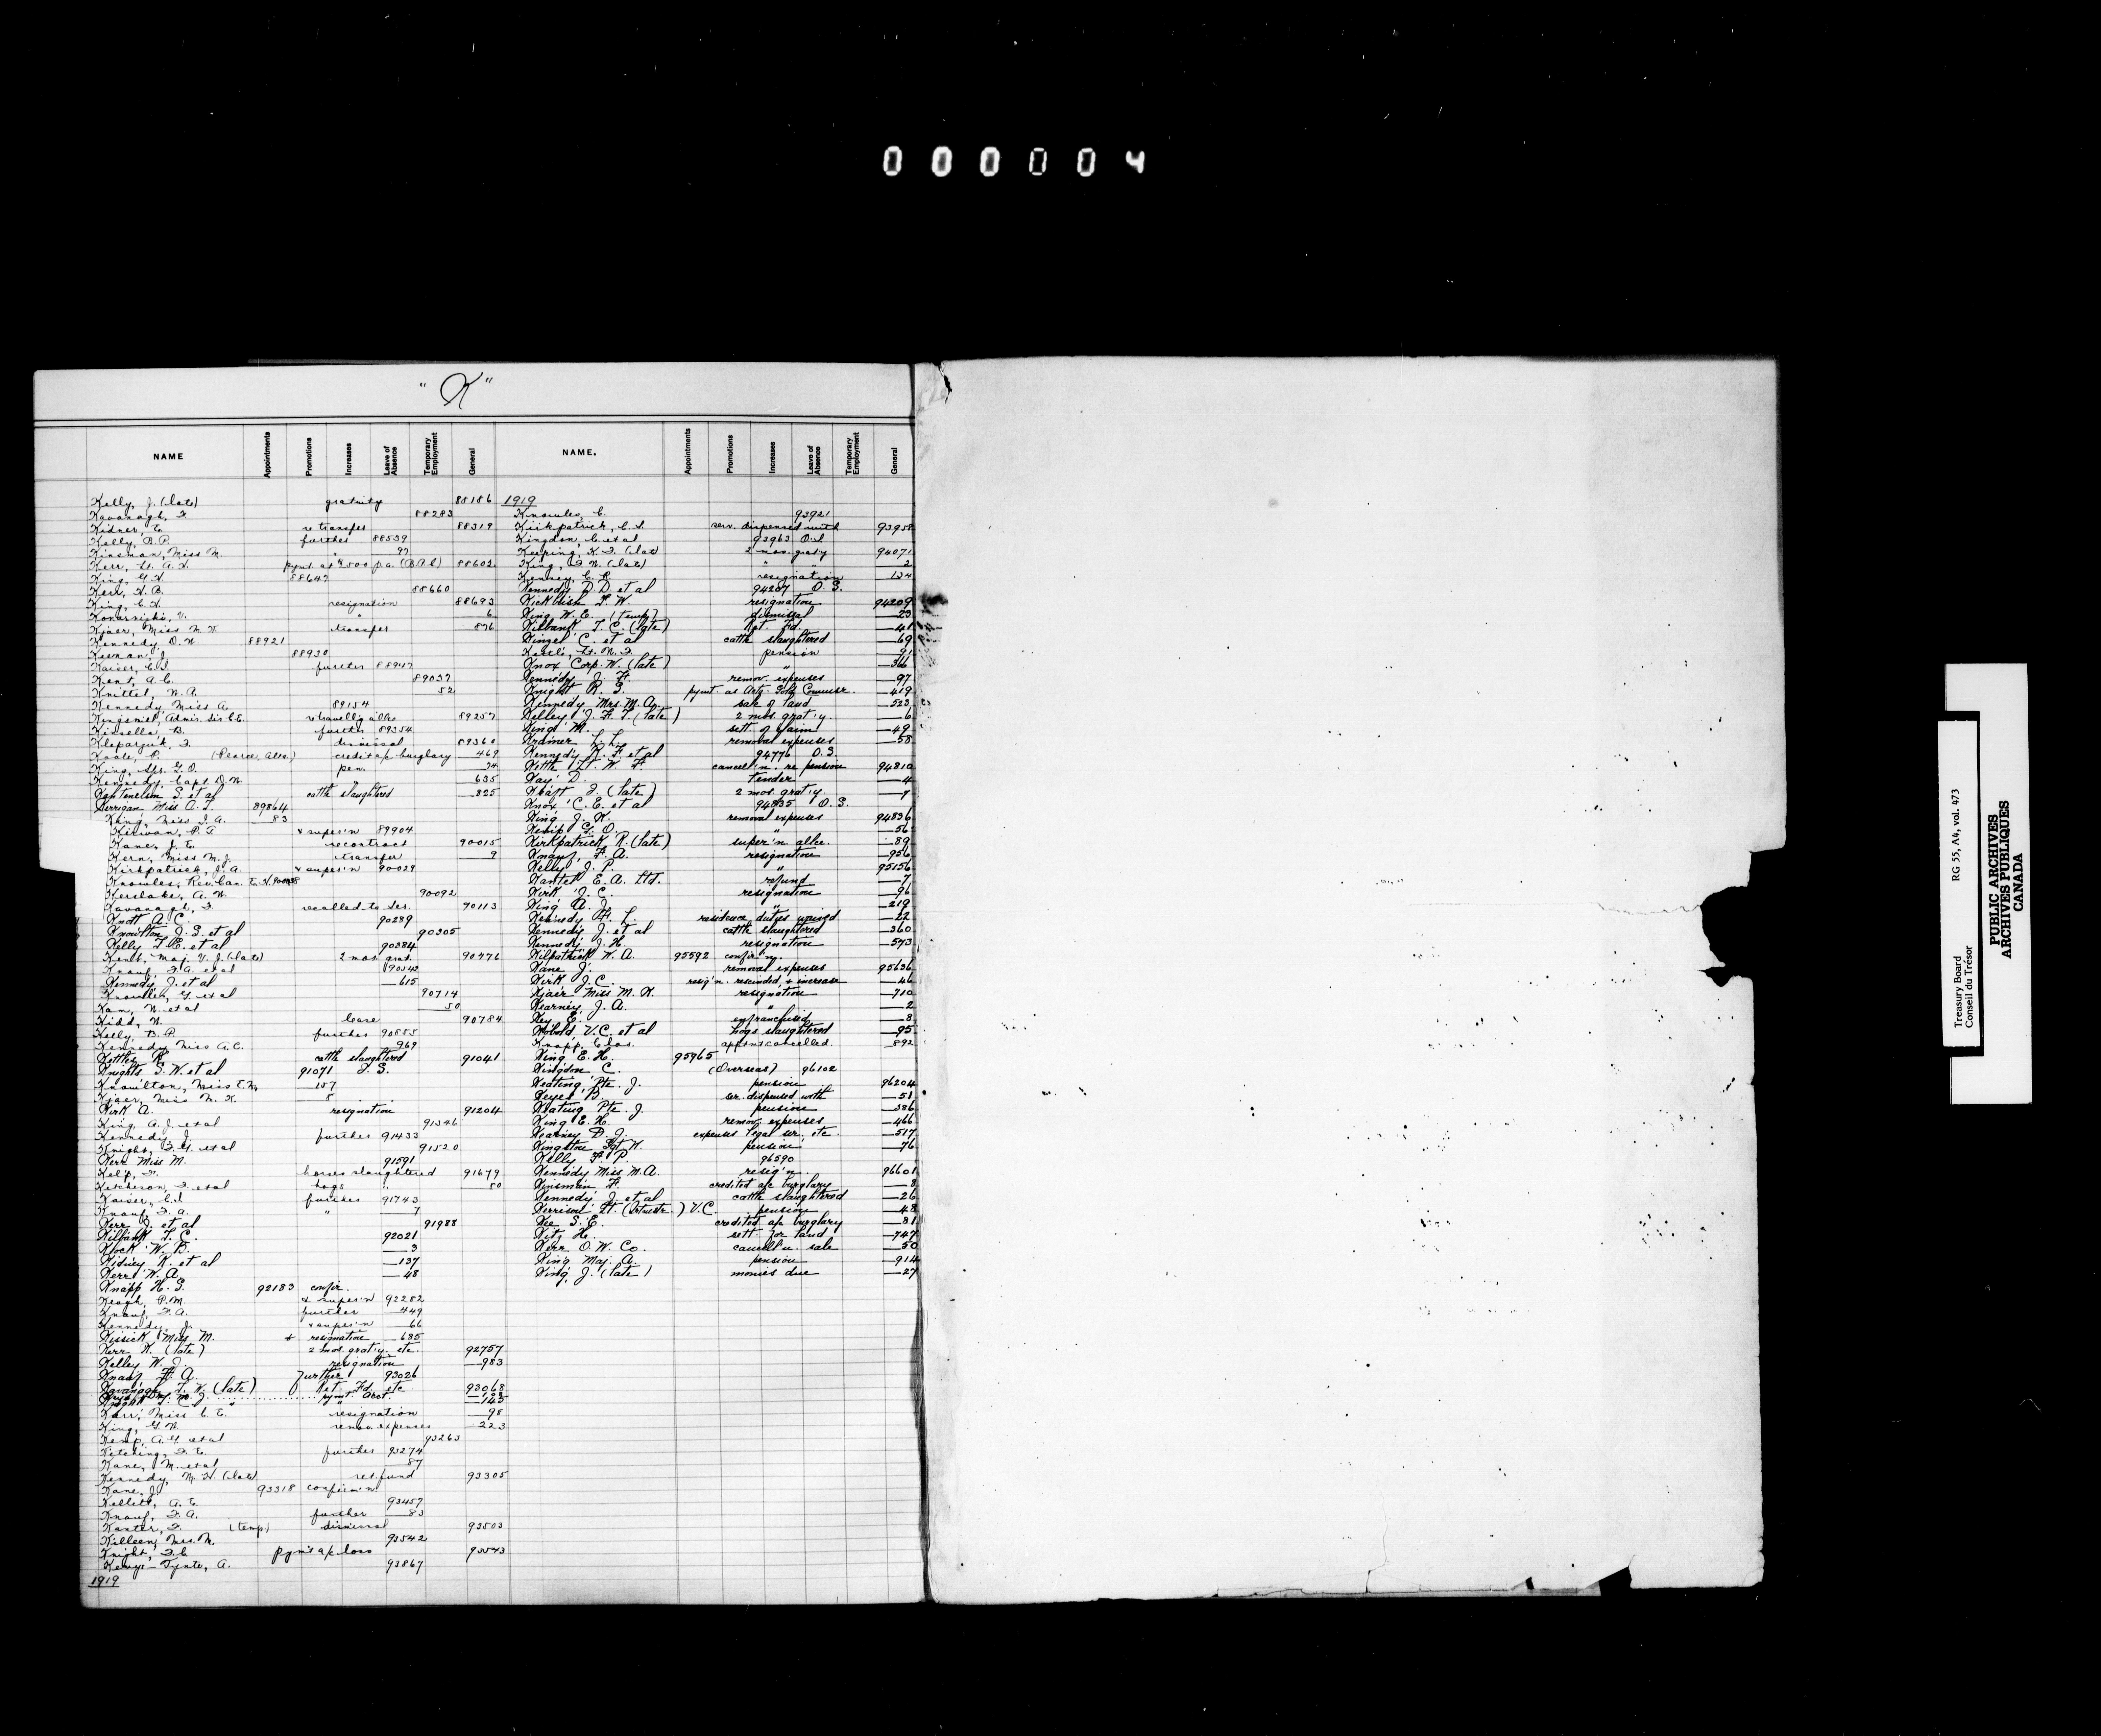 000004
" K "
NAME Appointments Promotions Increases Leave of Absence Temporary Employment General
Kelly, J. (late) gratuity 88186
Kavanagh, F. 88283
Kidner, E. re transfer 88319
Kelly, B.P. further 88539
Kinsman, Miss M. " 97
Kerr, A. pymt. at $500 p.a. 88602
King, G. 88647
Kerr, B. 88660
King, C. resignation 88693
" 6
Kjaer, Miss M. K. transfer 876
Kennedy, D. W. 88921
Keenan, J. 88930
Kaiser, C.I. further 88947
Kent, A.C. 89037
Knittel, W. A. 52
Kennedy, Miss A. 89154
Kingsmill, Admir. Sir C.E. re travellg allce 89257
Kinsella, B. further 89354
dismissal 89360
(Pearce, Alta.) credit a/c burglary 469
King, Spr. G. O. pen. 74
Kennedy, Capt. D. W. 635
S. et al cattle slaughtered 825
Kerrigan Miss A. T. 89864
King, Miss I. A. 83
Kirwan, P. T. & super'n 89904
Kane, J. E. re contract 90015
Kern, Miss M. J. transfer 9
Kirkpatrick, J. A. & super'n 90029
Knowles, Rev. Can. E. H.
Kerslake, A. W. 90092
Kavanagh, F. recalled to ser. 90113
Knott A. C. 90289
Knowlton J. S. et al 90305
Kelly T. E. et al 90384
Kent, Maj. V. J. (late) 2 mos. grat. 90476
Knauf, F. A. et al 90542
Kennedy, J. et al 615
Knowles, G. et al 90714
Kam, W. et al 50
Kidd, W. lease 90784
Kelly, B. P. further 90855
Kennedy Miss A. C. 969
Kettles R. cattle slaughtered 91041
Knights S. W. et al 91071 I. S.
Knowlton, Miss E. M. 157
Kjaer, Miss M. K. 8
Kirk A. resignation 91204
King, A. J. et al 91346
Kennedy, J. further 91433
Knight, F. G. et al 91520
Kerr Miss M. 91591
Kelp, F. horses slaughtered 91679
Kitcheson, F. et al hogs " 80
Kaiser, C. I. further 91743
Knauf, F. A. " 7
Kerr J. et al 91988
Kilbank T. C. 92021
Klock W. B. 3
Kidney K. et al 137
Kerr W. A. 48
Knapp H. S. 92183 confir.
Keogh, P. M. & super'n 92282
Knauf, F. A. further 449
Kennedy, J. & super'n 66
Kissick, Miss M. & resignation 685
Kerr K. (late) 2 mos. grat'y. etc. 92757
Kelley W. J. resignation 983
Knauf F. A. Further 93026
Kavanagh T. K. (late) Ret. Fd. etc 93068
Knight T. C. " " 145
Karr, Miss C. E. resignation 98
King, G. W. remov. expenses 223
Kemp, A. G. et al 93263
Kitching, F. E. further 93274
Kane, M. et al 87
Kennedy, M. H. (late) ret. fund 93305
Kane, J. 93318 confirm'n
Kellett, A. E. 93457
Knauf, F. A. further 83
Kanter, F. (temp) dismissal 93503
Killeen, Mrs. M. 93542
Knight, F. C. pymt a/c loss 93543
Kemys-Tynte, A. 93867
1919
NAME. Appointments Promotions Increases Leave of Absence Temporary Employment General
1919
Knowles, C. 93921
Kirkpatrick, C. I. serv. dispensed with 93958
Kingdon, C. et al 93963 O.S.
Keeping, K. F. (late) 2 mos. graty 94071
King, F. W. (late) " " 2
Kenney, C. P. resignation 134
Kennedy D. D. et al 94207 O. S.
Kickbush F. W. resignation 94209
King W. E. (temp) dismissal 23
Kilbank T. C. (late) Ret. Fd. 41
Kinzel C. et al cattle slaughtered 69
Kettle, Lt. W. F. pension 91
Knox Corp. W. (late) " 366
Kennedy J. F. remov. expenses 97
Knight R. S. pymt. as Actg. Gold Commissr. 419
Kennedy Mrs. M. A. sale of land 523
Kelley J. F. T. (late) 2 mos. grat'y. 6
King M. sett. of claim 49
Kramer L. L. removal expenses 58
Kennedy K. F. et al 94776 O. S.
Kittle Lt. W. F. cancell'n. re pension 94810
Kay D. tender 4
Kraft J. (late) 2 mos. grat'y. 7
Knox C. E. et al 94835 O. S.
King J. K. removal expenses 94836
Kemp G. O. " 56
Kirkpatrick R. (late) super'n allce. 89
Knauf, F. A. resignation 956
Kelly J. P. " 95156
Kantel E. A. Ltd. refund 7
Kirk J. C. resignation 96
King A. J. " 219
Kennedy F. L. residence duties waived 22
Kennedy J. et al cattle slaughtered 360
Kennedy J. H. resignation 573
Kilpatrick K. A. 95592 confir'n.
Kane J. removal expenses 95636
Kirk J. C. resig'n. rescinded, & increase 46
Kjaer Miss M. K. resignation 710
Kearney J. A. " 2
Key E. enfranchised 8
Kobold V. C. et al hogs slaughtered 95
Knapp, Chas. apptmt cancelled. 892
King E. H. 95965
Kingdon C. (Overseas) 96102
Keating Pte. J. pension 96204
Keyes B. ser. dispensed with 51
Keating Pte. J. pension 386
King E. H. remov. expenses 466
Kearney D. J. expenses legal ser. etc. 517
Kingston Sgt K. pension 76
Kelly F. P. 96590
Kennedy Miss M. A. resig'n. 96601
Kinsman F. credited a/c burglary 8
Kennedy J. et al cattle slaughtered 26
Kerrison Lt. ) V.C. pension 48
Kee S. E. credited a/c burglary 81
Kitz H. sett. for land 747
Kerr O. W. Co. cancell'n. sale 50
King Maj. A. pension 914
King, J. (late) monies due 27
Treasury Board RG 55, A4, vol. 473
Conseil du Trésor
PUBLIC ARCHIVES
ARCHIVES PUBLIQUES
CANADA